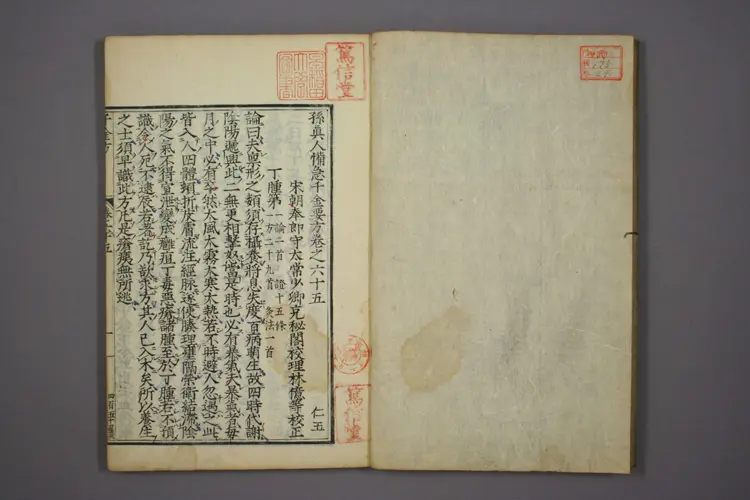 孫真人備急千金要方卷之六十五
仁五
宋朝奉郎守太常少卿充秘閣校理林億等校正
丁腫第一
論一首 證十五條
方二十九首 灸法一首
論曰夫稟形之類須存攝養將息失度百病萌生故四時代謝
陰陽遞興此二氣更相擊怒當是時也必有暴氣夫暴氣者每
月之中必有卒然大風大霧大寒大熱若不時避人忽遇之此
皆入人四體頓折皮膚流注經脉遂使腠理壅隔榮衛結滯陰
陽之氣不得宣泄變成癰疽丁毒惡瘡諸腫至於丁腫若不預
識令人死不逮辰若著訖乃欲求方其人已入木矣所以養生
之士須早識此方凡是瘡痍無所逃
篤信堂
篤信堂